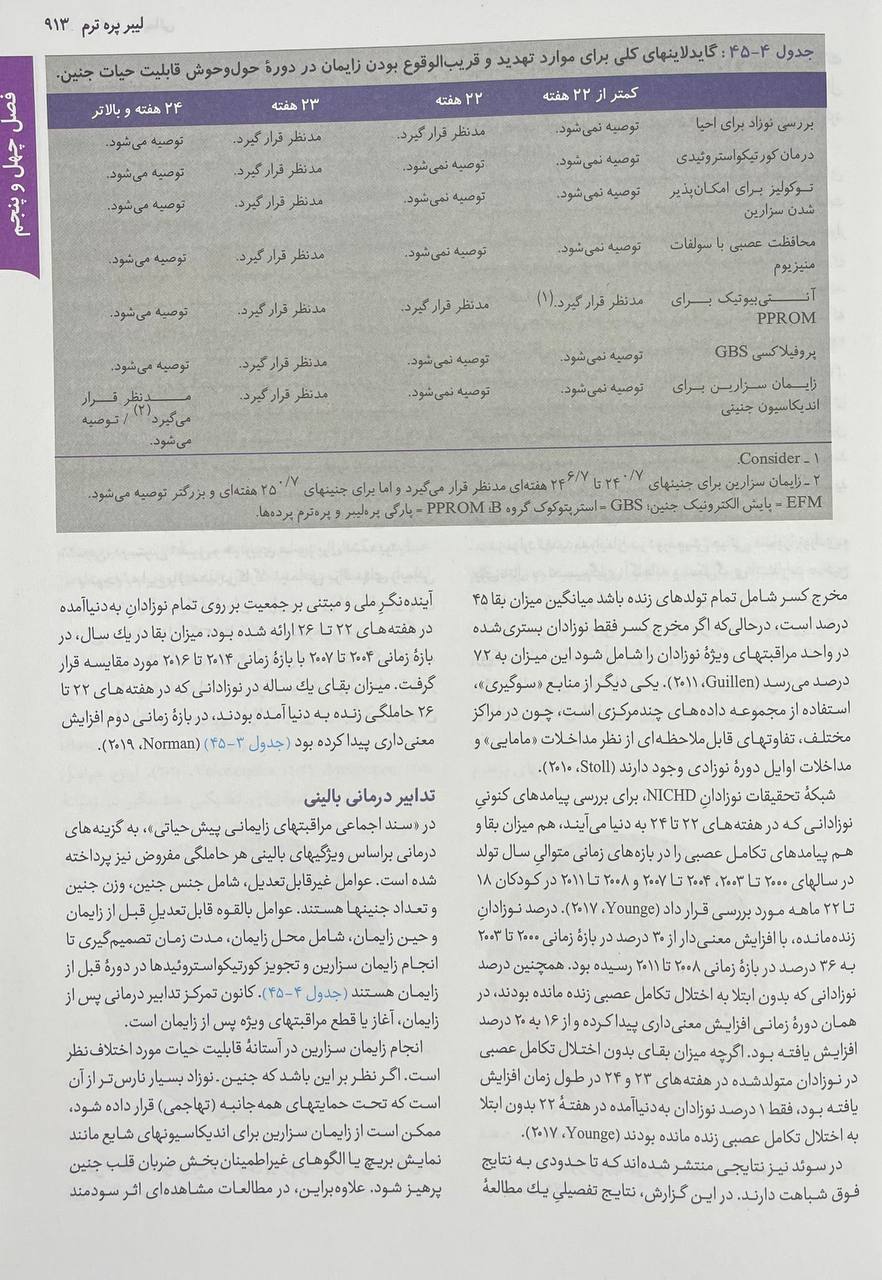 لیبر پره ترم ۹۱۳
فصل چهل و پنجم
جدول ۴-۴۵: گایدلاینهای کلی برای موارد تهدید و قریب‌الوقوع بودن زایمان در دورهٔ حول‌وحوش قابلیت حیات جنین.
کمتر از ۲۲ هفته ۲۲ هفته ۲۳ هفته ۲۴ هفته و بالاتر
بررسی نوزاد برای احیا توصیه نمی‌شود. مدنظر قرار گیرد. مدنظر قرار گیرد. توصیه می‌شود.
درمان کورتیکواستروئیدی توصیه نمی‌شود. توصیه نمی‌شود. مدنظر قرار گیرد. توصیه می‌شود.
توکولیز برای امکان‌پذیر توصیه نمی‌شود. توصیه نمی‌شود. مدنظر قرار گیرد. توصیه می‌شود.
شدن سزارین
محافظت عصبی با سولفات توصیه نمی‌شود. توصیه نمی‌شود. مدنظر قرار گیرد. توصیه می‌شود.
منیزیوم
آنتی‌بیوتیک برای مدنظر قرار گیرد.(۱) مدنظر قرار گیرد. مدنظر قرار گیرد. توصیه می‌شود.
PPROM
پروفیلاکسی GBS توصیه نمی‌شود. توصیه نمی‌شود. مدنظر قرار گیرد. توصیه می‌شود.
زایمان سزارین برای توصیه نمی‌شود. توصیه نمی‌شود. مدنظر قرار گیرد. مدنظر قرار
اندیکاسیون جنینی می‌گیرد(۲) / توصیه
می‌شود.
۱ ـ Consider.
۲ ـ زایمان سزارین برای جنینهای ۲۴۰/۷ تا ۲۴۶/۷ هفته‌ای مدنظر قرار می‌گیرد و اما برای جنینهای ۲۵۰/۷ هفته‌ای و بزرگتر توصیه می‌شود.
EFM = پایش الکترونیک جنین؛ GBS = استرپتوکوک گروه B؛ PPROM = پارگی پره‌لیبر و پره‌ترم پرده‌ها.
مخرج کسر شامل تمام تولدهای زنده باشد میانگین میزان بقا ۴۵
درصد است، درحالی‌که اگر مخرج کسر فقط نوزادان بستری‌شده
در واحد مراقبتهای ویژهٔ نوزادان را شامل شود این میزان به ۷۲
درصد می‌رسد (Guillen، ۲۰۱۱). یکی دیگر از منابع «سوگیری»،
استفاده از مجموعه داده‌های چندمرکزی است، چون در مراکز
مختلف، تفاوتهای قابل‌ملاحظه‌ای از نظر مداخلات «مامایی» و
مداخلات اوایل دورهٔ نوزادی وجود دارند (Stoll، ۲۰۱۰).
شبکهٔ تحقیقات نوزادانِ NICHD، برای بررسی پیامدهای کنونی
نوزادانی که در هفته‌های ۲۲ تا ۲۴ به دنیا می‌آیند، هم میزان بقا و
هم پیامدهای تکامل عصبی را در بازه‌های زمانی متوالیِ سال تولد
در سالهای ۲۰۰۰ تا ۲۰۰۳، ۲۰۰۴ تا ۲۰۰۷ و ۲۰۰۸ تا ۲۰۱۱ در کودکان ۱۸
تا ۲۲ ماهه مورد بررسی قرار داد (Younge، ۲۰۱۷). درصد نوزادانِ
زنده‌مانده، با افزایش معنی‌دار از ۳۰ درصد در بازهٔ زمانی ۲۰۰۰ تا ۲۰۰۳
به ۳۶ درصد در بازهٔ زمانی ۲۰۰۸ تا ۲۰۱۱ رسیده بود. همچنین درصد
نوزادانی که بدون ابتلا به اختلال تکامل عصبی زنده مانده بودند، در
همان دورهٔ زمانی افزایش معنی‌داری پیدا کرده و از ۱۶ به ۲۰ درصد
افزایش یافته بود. اگرچه میزان بقای بدون اختلال تکامل عصبی
در نوزادان متولدشده در هفته‌های ۲۳ و ۲۴ در طول زمان افزایش
یافته بود، فقط ۱ درصد نوزادان به‌دنیاآمده در هفتهٔ ۲۲ بدون ابتلا
به اختلال تکامل عصبی زنده مانده بودند (Younge، ۲۰۱۷).
در سوئد نیز نتایجی منتشر شده‌اند که تا حدودی به نتایج
فوق شباهت دارند. در این گزارش، نتایج تفصیلیِ یك مطالعهٔ
آینده‌نگرِ ملی و مبتنی بر جمعیت بر روی تمام نوزادانِ به‌دنیاآمده
در هفته‌های ۲۲ تا ۲۶ ارائه شده بود. میزان بقا در یك سال، در
بازهٔ زمانی ۲۰۰۴ تا ۲۰۰۷ با بازهٔ زمانی ۲۰۱۴ تا ۲۰۱۶ مورد مقایسه قرار
گرفت. میزان بقای یك ساله در نوزادانی که در هفته‌های ۲۲ تا
۲۶ حاملگی زنده به دنیا آمده بودند، در بازهٔ زمانی دوم افزایش
معنی‌داری پیدا کرده بود (جدول ۳-۴۵) (Norman، ۲۰۱۹).
تدابیر درمانی بالینی
در «سند اجماعی مراقبتهای زایمانی پیش‌حیاتی»، به گزینه‌های
درمانی براساس ویژگیهای بالینی هر حاملگی مفروض نیز پرداخته
شده است. عوامل غیرقابل‌تعدیل، شامل جنس جنین، وزن جنین
و تعداد جنینها هستند. عوامل بالقوه قابل‌تعدیلِ قبل از زایمان
و حین زایمان، شامل محل زایمان، مدت زمان تصمیم‌گیری تا
انجام زایمان سزارین و تجویز کورتیکواستروئیدها در دورهٔ قبل از
زایمان هستند (جدول ۴-۴۵). کانون تمرکز تدابیر درمانی پس از
زایمان، آغاز یا قطع مراقبتهای ویژه پس از زایمان است.
انجام زایمان سزارین در آستانهٔ قابلیت حیات مورد اختلاف‌نظر
است. اگر نظر بر این باشد که جنین ـ نوزاد بسیار نارس‌تر از آن
است که تحت حمایتهای همه‌جانبه (تهاجمی) قرار داده شود،
ممکن است از زایمان سزارین برای اندیکاسیونهای شایع مانند
نمایش بریچ یا الگوهای غیراطمینان‌بخش ضربان قلب جنین
پرهیز شود. علاوه‌براین، در مطالعات مشاهده‌ای اثر سودمند